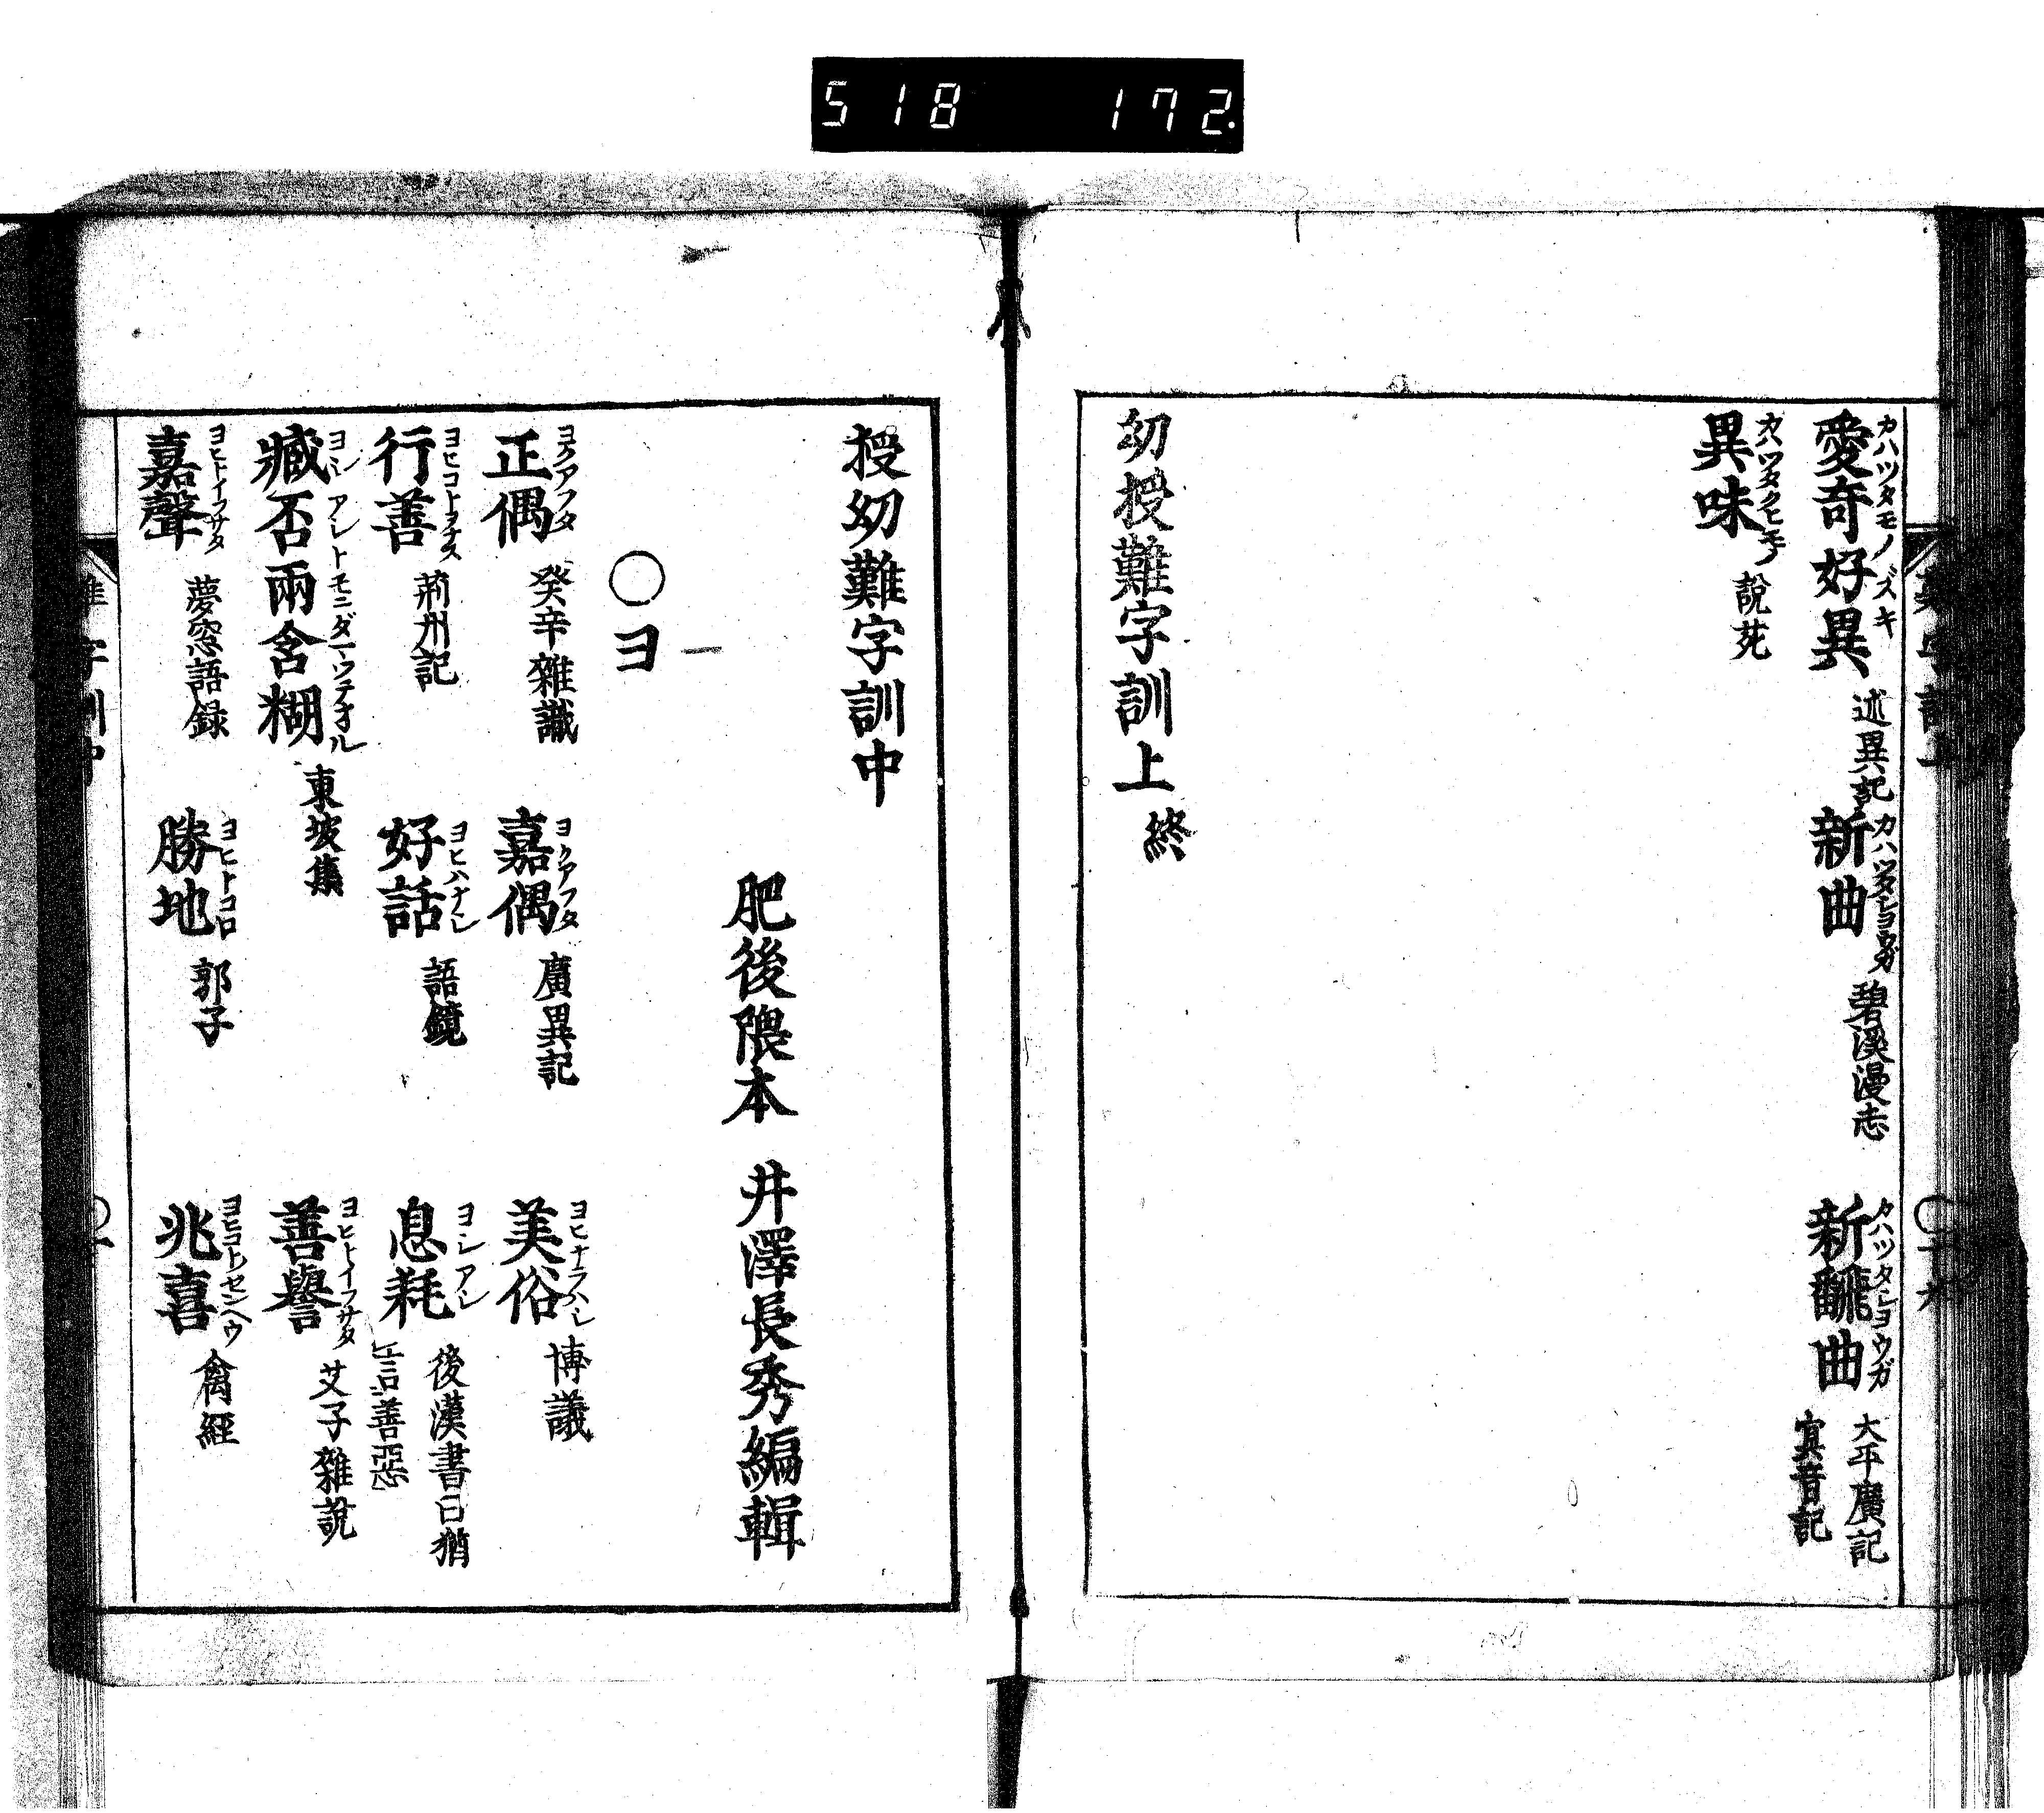 518 172
愛奇好異 カハツタモノズキ 述異記 新曲 カハツタシヨウガ 碧溪漫志 新翻曲 カハツタシヨウガ 大平廣記 寘音記
異味 カハツタクヒモノ 說苑
幼授難字訓上 終
授幼難字訓中
肥後隈本 井澤長秀編輯
〇ヨ
正偶 ヨクアフタ 癸辛雜識 嘉偶 ヨクアフタ 廣異記 美俗 ヨヒナラハシ 博議
行善 ヨヒコトヲナス 荊州記 好話 ヨヒハナシ 語鏡 息耗 ヨシアシ 後漢書曰猶言善惡
臧否兩含糊 ヨシアシトモニダマツテオル 東坡集 善譽 ヨヒトイフサタ 艾子雜說
嘉聲 ヨヒトイフサタ 夢窓語録 勝地 ヨヒトコロ 郭子 兆喜 ヨヒコトノセンヘウ 禽經
字訓中